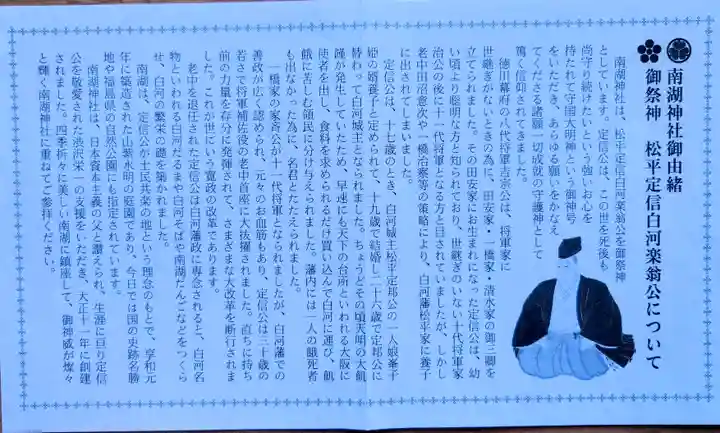 南湖神社御由緒
御祭神 松平定信白河楽翁公について
南湖神社は、松平定信白河楽翁公を御祭神
としています。定信公は、この世を死後も
尚守り続けたいという強いお心を
持たれて守国大明神という御神号
をいただき、あらゆる願いをかなえ
てくださる諸願一切成就の守護神として
篤く信仰されてきました。
徳川幕府の八代将軍吉宗公は、将軍家に
世継ぎがないときの為に、田安家・一橋家・清水家の御三卿を
立てられました。その田安家にお生まれになった定信公は、幼
い頃より聡明な方と知られており、世継ぎのいない十代将軍家
治公の後に十一代将軍となる方と目されていましたが、しかし
老中田沼意次や一橋治察等の策略により、白河藩松平家に養子
に出されてしまいました。
定信公は、十七歳のとき、白河城主松平定邦公の一人娘峯子
姫の婿養子と定められて、十九歳で結婚し二十六歳で定邦公に
替わって白河城主となられました。ちょうどその頃天明の大飢
饉が発生していたため、早速にも天下の台所といわれる大阪に
使者を出し、食料を求められるだけ買い込んで白河に運び、飢
餓に苦しむ領民に分け与えられました。藩内には一人の餓死者
も出なかった為に、名君とたたえられました。
一橋家の家斉公が十一代将軍となられましたが、白河藩での
善政が広く認められ、元々のお血筋もあり、定信公は三十歳の
若さで将軍補佐役の老中首座に大抜擢されました。直ちに持ち
前の力量を存分に発揮されて、さまざまな大改革を断行されま
した。これが世にいう寛政の改革であります。
老中を退任された定信公は白河藩政に専念されると、白河名
物といわれる白河だるまや白河そばや南湖だんごなどをつくら
せ、白河の繁栄の礎を築かれました。
南湖は、定信公が士民共楽の地という理念のもとで、享和元
年に築造された山紫水明の庭園であり、今日では国の史跡名勝
地や福島県の自然公園にも指定されています。
南湖神社は、日本資本主義の父と讃えられ、生涯に亘り定信
公を敬愛された渋沢栄一の支援をいただき、大正十一年に創建
されました。四季折々に美しい南湖に鎮座して、御神威が燦々
と輝く南湖神社に重ねてご参拝ください。